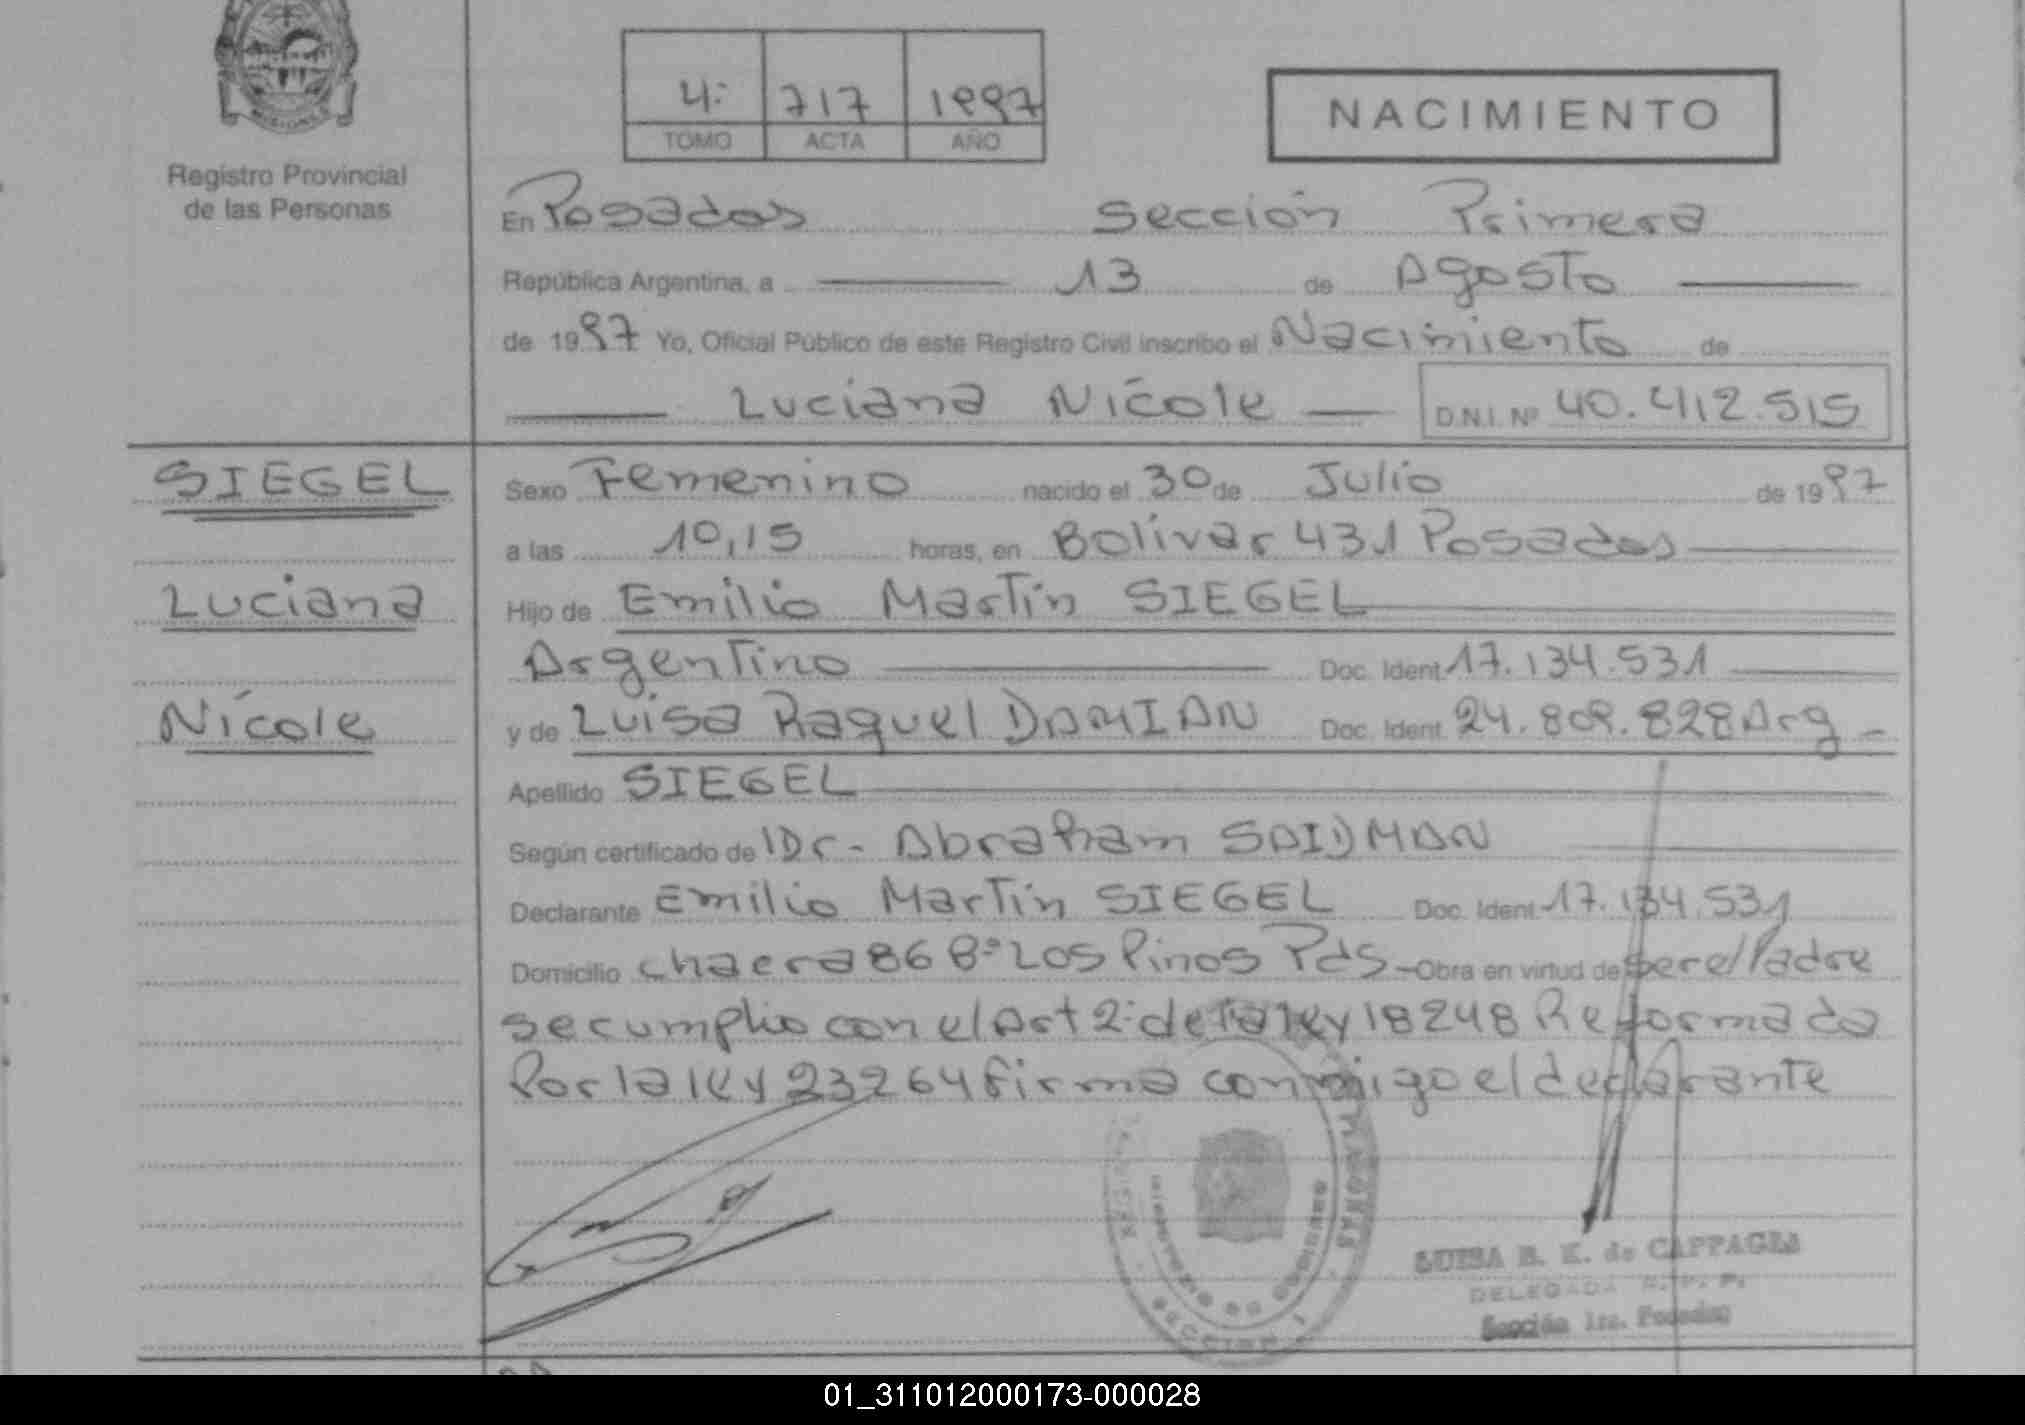 MISIONES
Registro Provincial
de las Personas
4º 717 1997
TOMO ACTA AÑO
NACIMIENTO
En Posadas Sección Primera
República Argentina, a 13 de Agosto
de 1997 Yo, Oficial Público de este Registro Civil inscribo el Nacimiento de
Luciana Nicole D.N.I. Nº 40.412.515
SIEGEL
Luciana
Nicole
Sexo Femenino nacido el 30 de Julio de 1997
a las 10,15 horas, en Bolívar 431 Posadas
Hijo de Emilio Martín SIEGEL
Argentino Doc. Ident. 17.134.531
y de Luisa Raquel DAMIAN Doc. Ident. 24.809.828 Arg
Apellido SIEGEL
Según certificado de Dr. Abraham SAIDMAN
Declarante Emilio Martín SIEGEL Doc. Ident. 17.134.531
Domicilio chacra 86 Bº Los Pinos Pds - Obra en virtud de ser el Padre
se cumplio con el Art 2º de la ley 18248 Reformada
Por la ley 23264 firma conmigo el declarante
SECCION 1
LUISA B. K. de CAPPAGLI
DELEGADA R. P. P.
Sección 1ra. Posadas
01_311012000173-000028